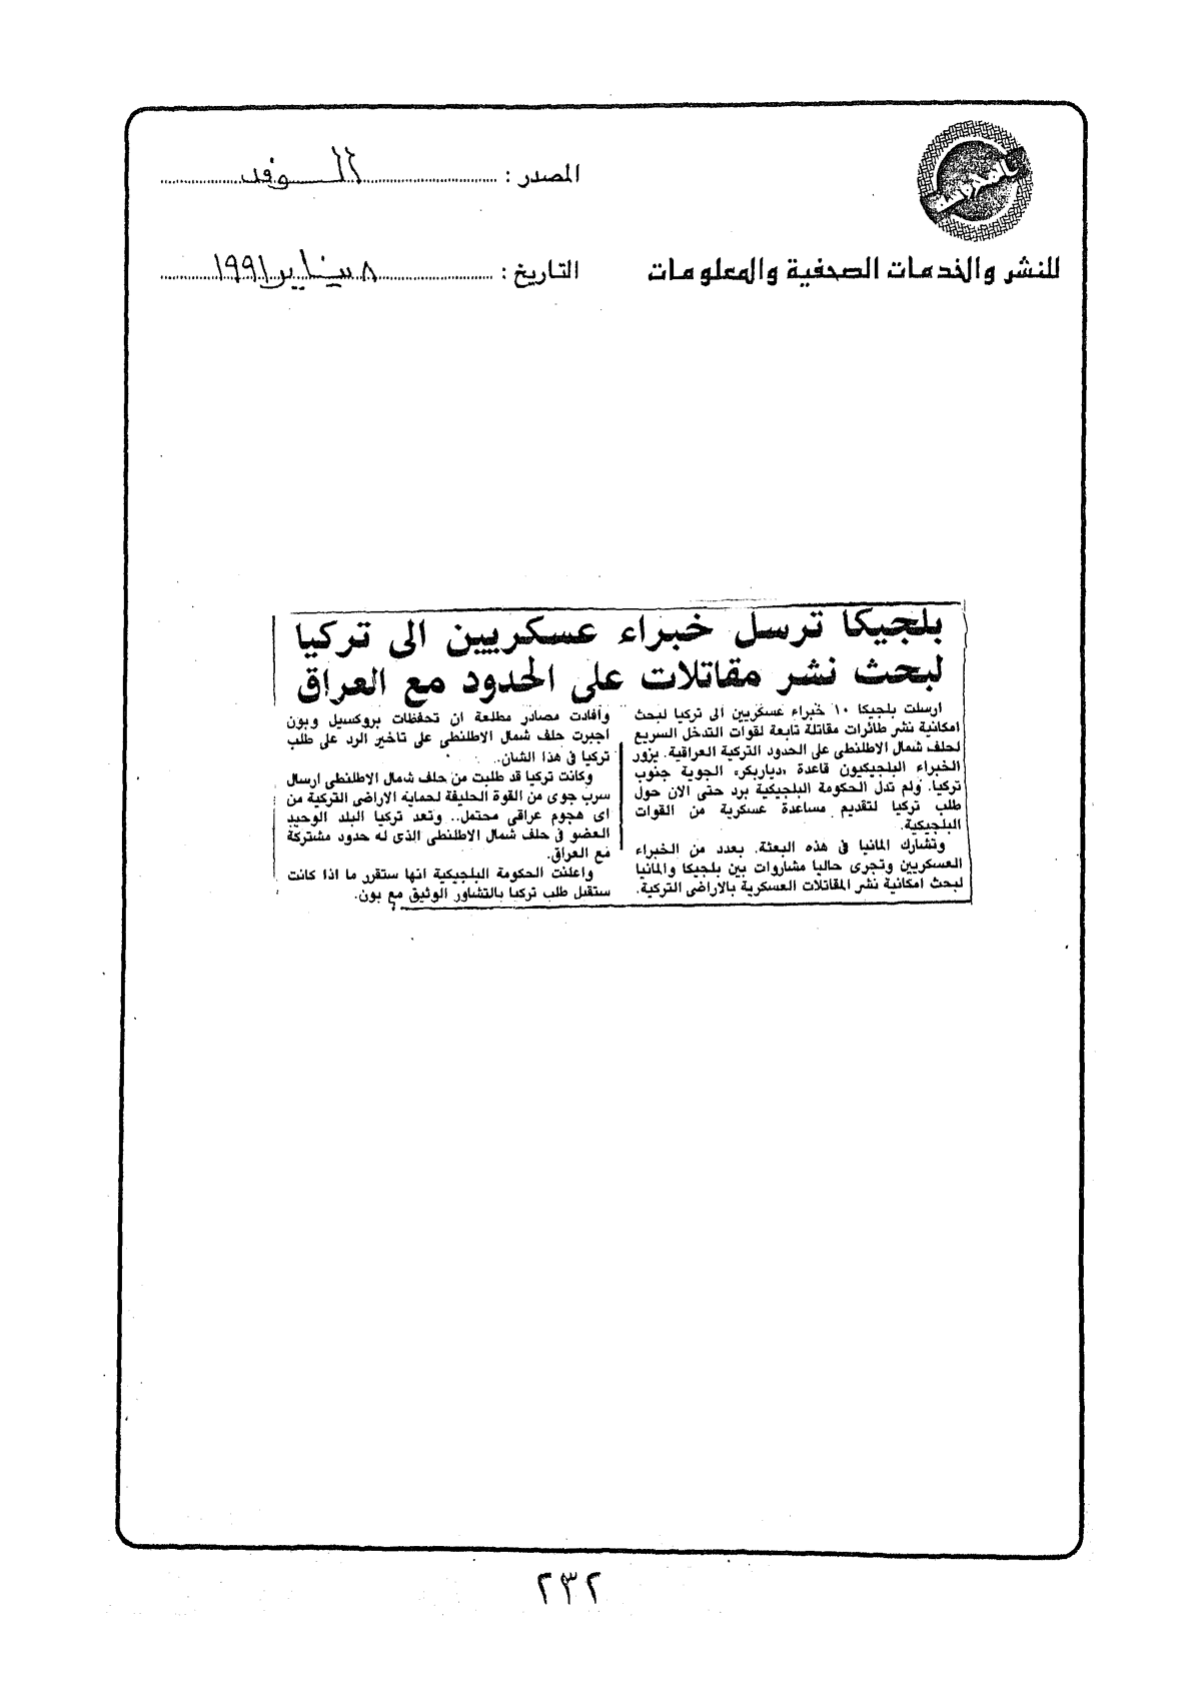 المصدر : الوفد
للنشر والخدمات الصحفية والمعلومات
التاريخ : ٨ يناير ١٩٩١
بلجيكا ترسل خبراء عسكريين الى تركيا
لبحث نشر مقاتلات على الحدود مع العراق
ارسلت بلجيكا ١٠ خبراء عسكريين الى تركيا لبحث
امكانية نشر طائرات مقاتلة تابعة لقوات التدخل السريع
لحلف شمال الاطلنطى على الحدود التركية العراقية. يزور
الخبراء البلجيكيون قاعدة «دياربكر» الجوية جنوب
تركيا. ولم تدل الحكومة البلجيكية برد حتى الان حول
طلب تركيا لتقديم مساعدة عسكرية من القوات
البلجيكية.
وتشارك المانيا فى هذه البعثة. بعدد من الخبراء
العسكريين وتجرى حاليا مشاروات بين بلجيكا والمانيا
لبحث امكانية نشر المقاتلات العسكرية بالاراضى التركية.
وأفادت مصادر مطلعة ان تحفظات بروكسيل وبون
اجبرت حلف شمال الاطلنطى على تاخير الرد على طلب
تركيا فى هذا الشان.
وكانت تركيا قد طلبت من حلف شمال الاطلنطى ارسال
سرب جوى من القوة الحليفة لحماية الاراضى التركية من
اى هجوم عراقى محتمل.. وتعد تركيا البلد الوحيد
العضو فى حلف شمال الاطلنطى الذى له حدود مشتركة
مع العراق.
واعلنت الحكومة البلجيكية انها ستقرر ما اذا كانت
ستقبل طلب تركيا بالتشاور الوثيق مع بون.
٢٣٢